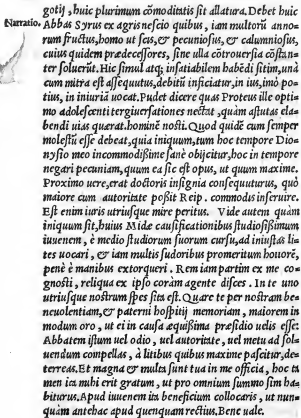 gotij, huic plurimum cõmoditatis sit allatura. Debet huic
Narratio. Abbas Syrus ex agris nescio quibus, iam multorũ anno-
rum fructus, homo ut scis, & pecuniosus, & calumniosus,
cuius quidem prædecessores, sine ulla cõtrouersia cõstan-
ter soluerũt. Hic simul atq; insatiabilem habẽdi sitim, unà
cum mitra est assequutus, debitũ inficiatur, in ius, imò po-
tius, in iniuriã uocat. Pudet dicere quas Proteus ille opti-
mo adolescenti tergiuersationes nectat, quàm astutas ela-
bendi uias quærat. hominẽ nosti. Quod quidẽ cum semper
molestũ esse debeat, quia iniquum, tum hoc tempore Dio-
nysio meo incommodissime sanè obijcitur, hoc in tempore
negari pecuniam, quum ea sic est opus, ut quum maxime.
Proximo uere, erat doctoris insignia consequuturus, quò
maiore cum autoritate possit Reip. commodis inseruire.
Est enim iuris utriusque mire peritus. Vide autem quàm
iniquum sit, huius Midæ causificationibus studiosissimum
iuuenem, è medio studiorum suorum cursu, ad iniustas li-
tes uocari, & iam multis sudoribus promeritum honorẽ,
penè è manibus extorqueri. Rem iam partim ex me co-
gnosti, reliqua ex ipso coràm agente disces. In te uno
utriusque nostrûm spes sita est. Quare te per nostram be-
neuolentiam, & paterni hospitij memoriam, maiorem in
modum oro, ut ei in causa æquissima præsidio uelis esse:
Abbatem istum uel odio, uel autoritate, uel metu ad sol-
uendum compellas, à litibus quibus maxime pascitur, de-
terreas. Et magna & multa sunt tua in me officia, hoc ta
men ita mihi erit gratum, ut pro omnium summo sim ha-
biturus. Apud iuuenem ita beneficium collocaris, ut nun-
quàm antehac apud quenquam rectius. Bene uale.